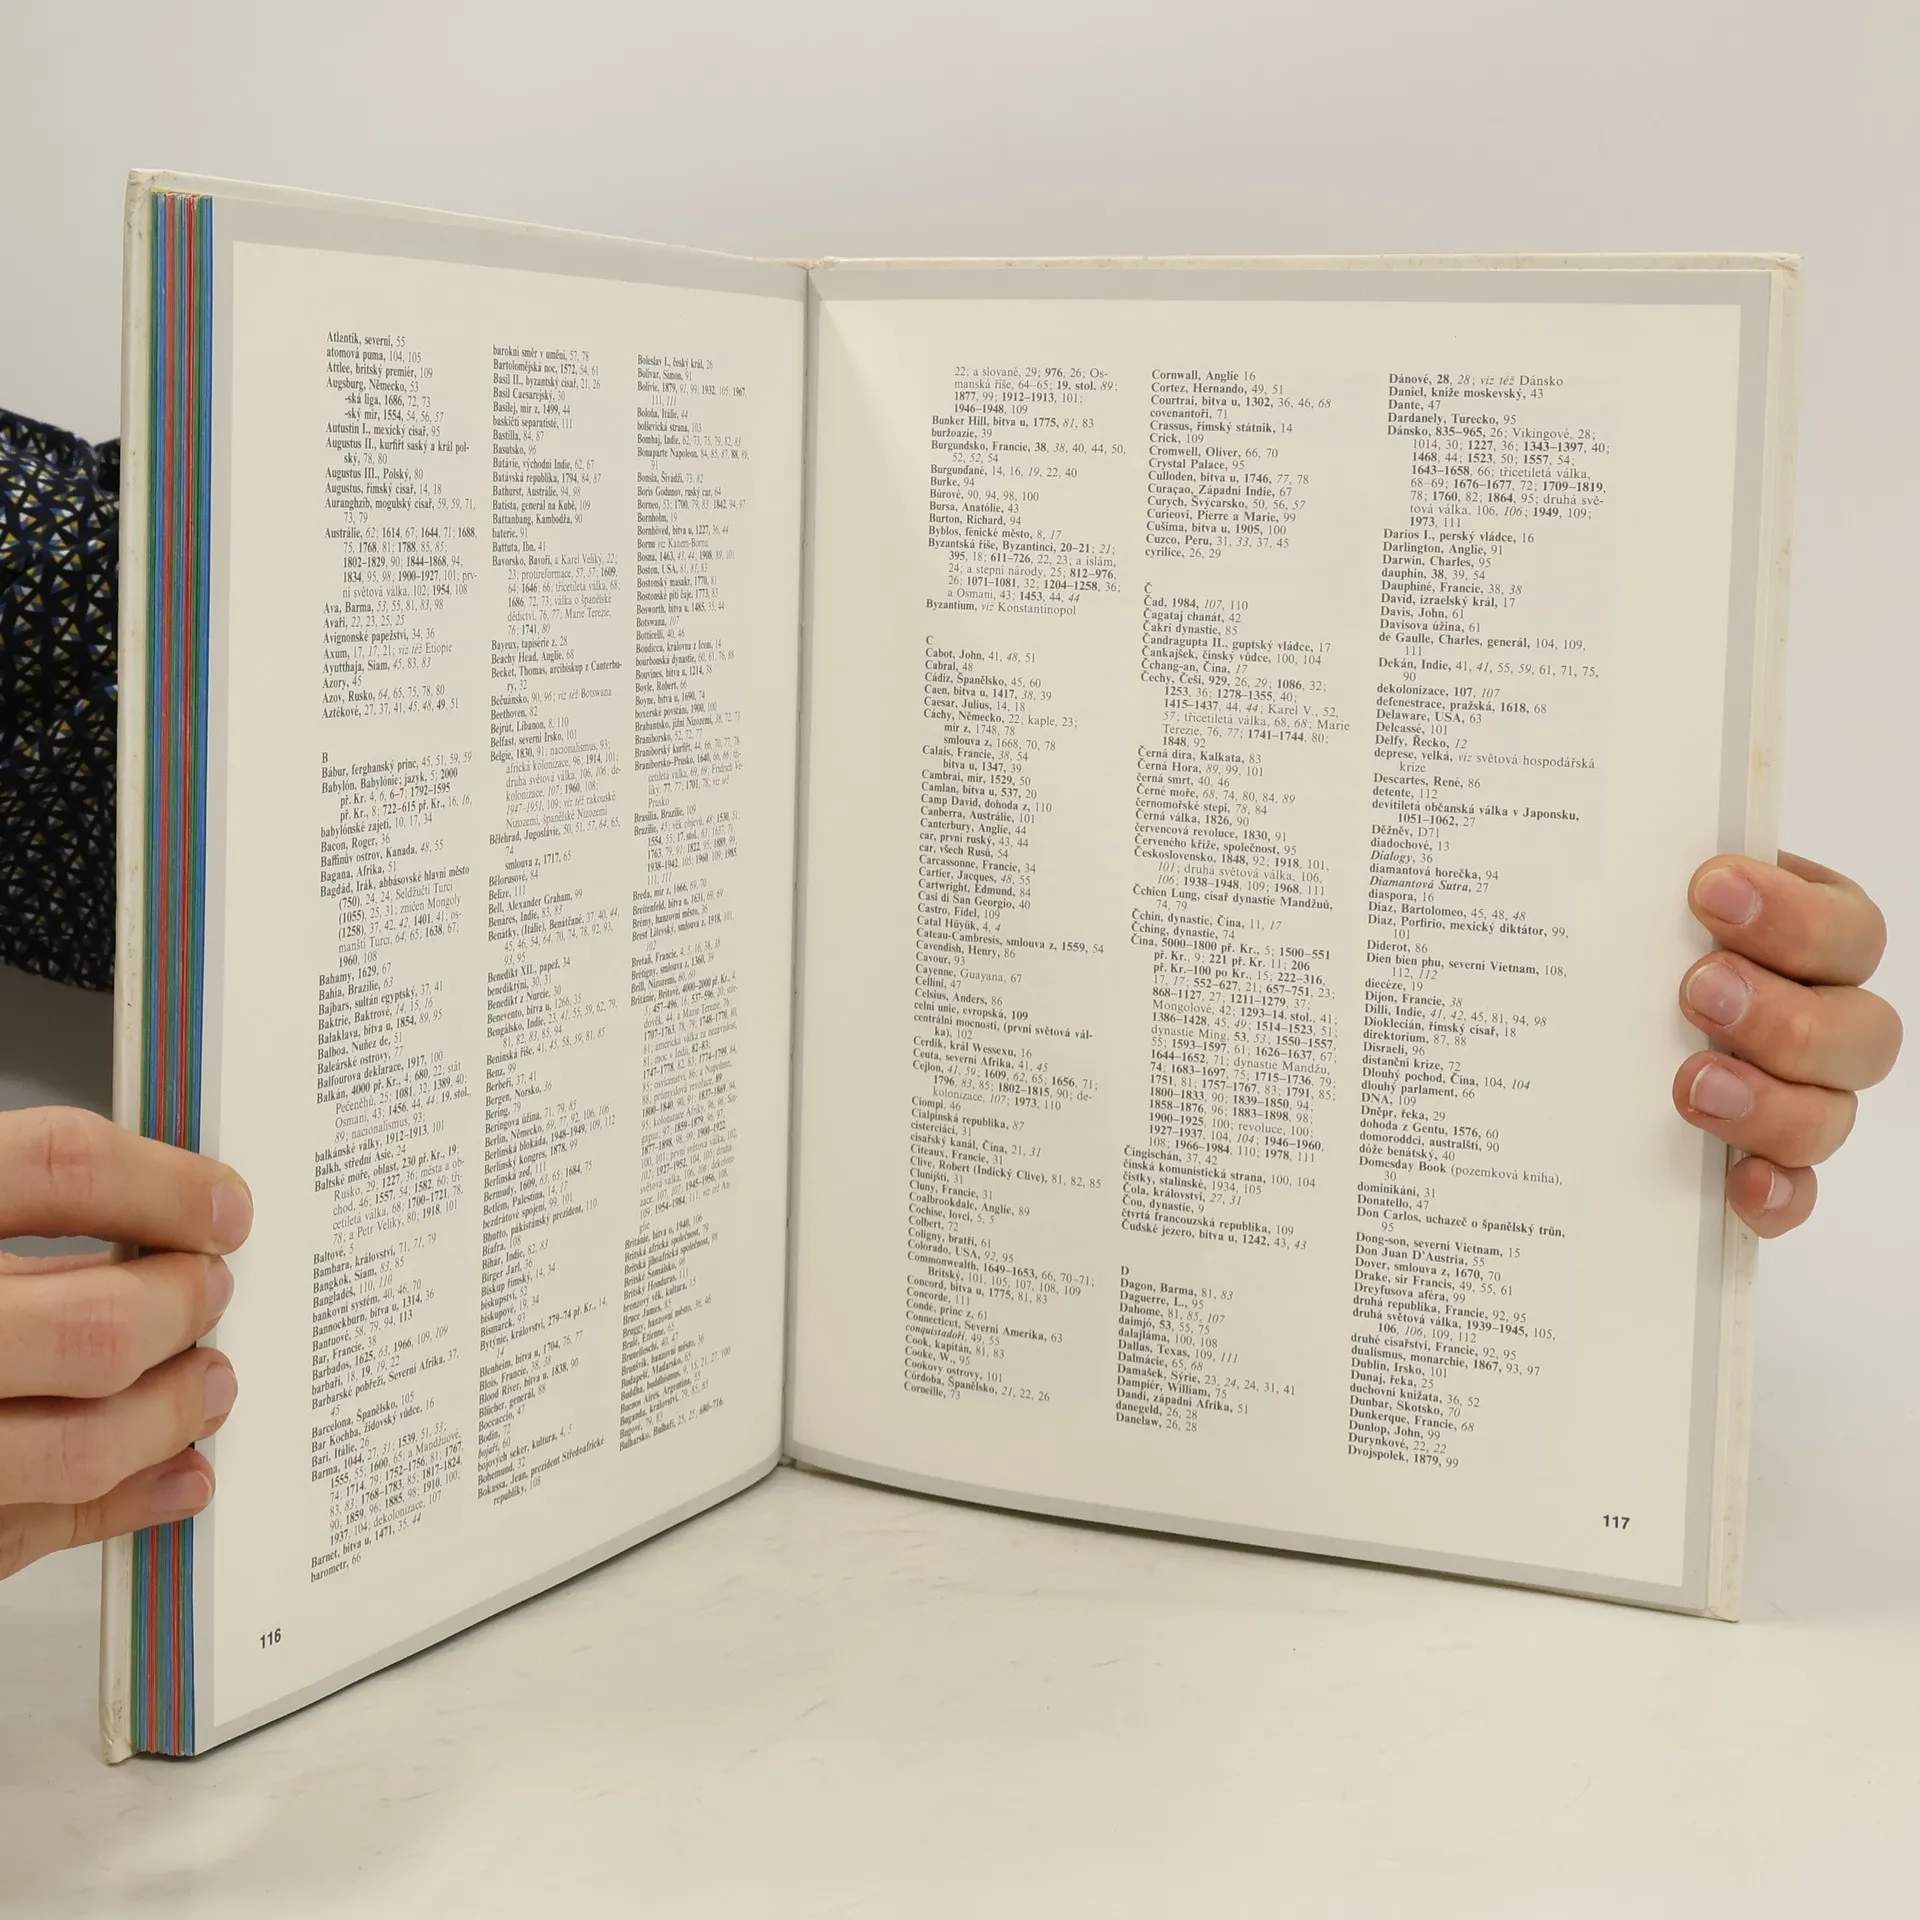 Atlantik, severní, 55
atomová puma, 104, 105
Attlee, britský premiér, 109
Augsburg, Německo, 53
-ská liga, 1686, 72, 73
-ský mír, 1554, 54, 56, 57
Autustin I., mexický císař, 95
Augustus II., kurfiřt saský a král pol-
ský, 78, 80
Augustus III., Polský, 80
Augustus, římský císař, 14, 18
Auranghzíb, mogulský císař, 59, 59, 71,
73, 79
Austrálie, 62; 1614, 67; 1644, 71; 1688,
75, 1768, 81; 1788, 85, 85;
1802–1829, 90; 1844–1868, 94;
1834, 95, 98; 1900–1927, 101; prv-
ní světová válka, 102; 1954, 108
Ava, Barma, 53, 55, 81, 83, 98
Avaři, 22, 23, 25, 25
Avignonské papežství, 34, 36
Axum, 17, 17, 21; viz též Etiopie
Ayutthaja, Siam, 45, 83, 83
Azory, 45
Azov, Rusko, 64, 65, 75, 78, 80
Aztékové, 27, 37, 41, 45, 48, 49, 51
B
Bábur, ferghanský princ, 45, 51, 59, 59
Babylón, Babylónie; jazyk, 5; 2000
př. Kr. 4, 6, 6–7; 1792–1595
př. Kr., 8; 722–615 př. Kr., 16, 16,
babylónské zajetí, 10, 17, 34
Bacon, Roger, 36
Baffinův ostrov, Kanada, 48, 55
Bagana, Afrika, 51
Bagdád, Irák, abbásovské hlavní město
(750), 24, 24; Seldžučtí Turci
(1055), 25, 31; zničen Mongoly
(1258), 37, 42, 42, 1401, 41; os-
manští Turci, 64, 65; 1638, 67;
1960, 108
Bahamy, 1629, 67
Bahía, Brazílie, 63
Bajbars, sultán egyptský, 37, 41
Baktrie, Baktrové, 14, 15, 16
Balaklava, bitva u, 1854, 89, 95
Balboa, Nuñez de, 51
Baleárské ostrovy, 77
Balfourova deklarace, 1917, 100
Balkán, 4000 př. Kr., 4; 680, 22; stát
Pečeněhů, 25; 1081, 32; 1389, 40;
Osmani, 43; 1456, 44, 44; 19. stol.,
89; nacionalismus, 93;
balkánské války, 1912–1913, 101
Balkh, střední Asie, 24
Baltské moře, oblast, 230 př. Kr., 19;
Rusko, 29; 1227, 36; města a ob-
chod, 46; 1557, 54; 1582, 60; tři-
cetiletá válka, 68; 1700–1721, 78,
78; a Petr Veliký, 80; 1918, 101
Baltové, 5
Bambara, království, 71, 71, 79
Bangkok, Siam, 83, 85
Bangladéš, 110, 110
bankovní systém, 40, 46, 70
Bannockburn, bitva u, 1314, 36
Bantuové, 58, 79, 94, 113
Bar, Francie, 38
Barbados, 1625, 63, 1966, 109, 109
barbaři, 18, 19, 19, 22
Barbarské pobřeží, Severní Afrika, 37,
45
Barcelona, Španělsko, 105
Bar Kochba, židovský vůdce, 16
Bari, Itálie, 26
Barma, 1044, 27, 31; 1539, 51, 53;
1555, 55; 1600, 65; a Mandžuové,
74; 1714, 79; 1752–1756, 81; 1767,
83, 83; 1768–1783, 85; 1817–1824,
90; 1859, 96; 1885, 98; 1910, 100;
1937, 104; dekolonizace, 107
Barnet, bitva u, 1471, 35, 44
barometr, 66
barokní směr v umění, 57, 78
Bartolomějská noc, 1572, 54, 61
Basil II., byzantský císař, 21, 26
Basil Caesarejský, 30
Basilej, mír z, 1499, 44
baskičtí separatisté, 111
Bastilla, 84, 87
Basutsko, 96
Batávie, východní Indie, 62, 67
Batávská republika, 1794, 84, 87
Bathurst, Austrálie, 94, 98
Batista, generál na Kubě, 109
Battanbang, Kambodža, 90
baterie, 91
Battuta, Ibn, 41
Bavorsko, Bavoři, a Karel Veliký, 22;
23; protireformace, 57, 57; 1609,
64; 1646; 66; třicetiletá válka, 68,
1686, 72, 73; válka o španělské
dědictví, 76, 77; Marie Terezie,
76; 1741, 80
Bayeux, tapisérie z, 28
Beachy Head, Anglie, 68
Becket, Thomas, arcibiskup z Canterbu-
ry, 32
Bečuánsko, 90, 96; viz též Botswana
Beethoven, 82
Bejrút, Libanon, 8, 110
Belfast, severní Irsko, 101
Belgie, 1830, 91; nacionalismus, 93;
africká kolonizace, 96; 1914, 101;
druhá světová válka, 106, 106; de-
kolonizace, 107; 1960, 108;
1947-1951, 109; viz též rakouské
Nizozemí, španělské Nizozemí
Bělehrad, Jugoslávie, 50, 51, 57, 64, 65,
74
smlouva z, 1717, 65
Bělorusové, 84
Belize, 111
Bell, Alexander Graham, 99
Benáres, Indie, 83, 83
Benátky, (Itálie), Benátčané, 37, 40, 44,
45, 46, 54, 64, 70, 74, 78, 92, 93,
93, 95
Benedikt XII., papež, 34
benediktýni, 30, 31
Benedikt z Nurcie, 30
Benevento, bitva u, 1266, 35
Bengálsko, Indie, 23, 41, 55, 59, 62, 79,
81, 82, 83, 85, 94
Beninská říše, 41, 45, 58, 59, 81, 85
Benz, 99
Berbeři, 37, 41
Bergen, Norsko, 36
Bering, 79
Beringova úžina, 71, 79, 85
Berlín, Německo, 69, 77, 92, 106, 106
Berlínská blokáda, 1948–1949, 109, 112
Berlínský kongres, 1878, 99
Berlínská zeď, 111
Bermudy, 1609, 63, 65, 1684, 75
Betlém, Palestina, 14, 17
bezdrátové spojení, 99, 101
Bhutto, pakistánský prezident, 110
Biafra, 108
Bihár, Indie, 82, 83
Birger Jarl, 36
Biskup římský, 14, 34
biskupství, 52
biskupové, 19, 34
Bismarck, 93
Bytýnie, království, 279–74 př. Kr., 14,
14
Blenheim, bitva u, 1704, 76, 77
Blois, Francie, 38, 38
Blood River, bitva u, 1838, 90
Blücher, generál, 88
Boccaccio, 47
Bodin, 72
bojaři, 60
bojových seker, kultura, 4, 5
Bohemund, 32
Bokassa, Jean, prezident Středoafrické
republiky, 108
Boleslav I., český král, 26
Bolívar, Simon, 91
Bolívie, 1879, 91, 99; 1932, 105; 1967,
111, 111
Boloňa, Itálie, 44
bolševická strana, 103
Bombaj, Indie, 62, 73, 75, 79, 82, 83
Bonaparte Napoleon, 84, 85, 87, 88, 89,
91
Bonsla, Šivádží, 73, 82
Boris Godunov, ruský car, 64
Borneo, 53; 1700, 79, 83; 1842, 94, 97
Bornholm, 19
Bornhöved, bitva u, 1227, 36, 44
Bornu viz Kanem-Bornu
Bosna, 1463, 43, 44; 1908, 89, 101
Boston, USA, 81, 81, 83
Bostonský masakr, 1770, 81
Bostonské pití čaje, 1773, 83
Bosworth, bitva u, 1485, 35, 44
Botswana, 107
Botticelli, 40, 46
Boudicca, královna z Iceni, 14
bourbonská dynastie, 60, 61, 76, 88
Bouvines, bitva u, 1214, 38
Boyle, Robert, 66
Boyne, bitva u, 1690, 74
boxerské povstání, 1900, 100
Brabantsko, jižní Nizozemí, 38, 72, 73
Braniborsko, 52, 72, 77
Braniborský kurfiřt, 44, 66, 70, 77, 78
Braniborsko–Prusko, 1640, 66, 66; tři-
cetiletá válka, 69, 69; Fridrich Ve-
liký, 77, 77; 1701, 78, viz též
Prusko
Brasilia, Brazílie, 109
Breda, mír z, 1666, 69, 70
Breitenfeld, bitva u, 1631, 69, 69
Brémy, hanzovní město, 36
Brest Litevský, smlouva z, 1918, 101,
102
Bretaň, Francie, 4, 5, 16, 38, 38
Brétigny, smlouva z, 1360, 39
Brill, Nizozemí, 60, 60
Británie, bitva o, 1940, 106
Britská africká společnost, 79
Britská jihoafrická společnost, 98
Britské Somálsko, 96
Britský Honduras, 111
bronzový věk, kultura, 15
Bruce James, 85
Bruggy, hanzovní město, 36, 46
Brulé, Étienne, 65
Brunelleschi, 40, 47
Brunšvik, hanzovní město, 36
Budapešť, Maďarsko, 65
Buddha, buddhismus, 9, 15, 21, 27, 100
Buenos Aires, Argentina, 55
Buganda, království, 79, 85, 85
Bugové, 79, 83
Bulharsko, Bulhaři, 25, 25; 680–716,
116
22; a slované, 29; 976, 26; Os-
manská říše, 64–65; 19. stol. 89;
1877, 99; 1912–1913, 101;
1946–1948, 109
Bunker Hill, bitva u, 1775, 81, 83
buržoazie, 39
Burgundsko, Francie, 38, 38, 40, 44, 50,
52, 52, 54
Burgunďané, 14, 16, 19, 22, 40
Burke, 94
Búrové, 90, 94, 98, 100
Bursa, Anatólie, 43
Burton, Richard, 94
Byblos, fénické město, 8, 17
Byzantská říše, Byzantinci, 20–21; 21;
395, 18; 611–726, 22, 23; a islám,
24; a stepní národy, 25; 812–976,
26; 1071–1081, 32; 1204–1258, 36;
a Osmani, 43; 1453, 44, 44
Byzantium, viz Konstantinopol
C
Cabot, John, 41, 48, 51
Cabral, 48
Cádiz, Španělsko, 45, 60
Caen, bitva u, 1417, 38, 39
Caesar, Julius, 14, 18
Cáchy, Německo, 22; kaple, 23;
mír z, 1748, 78
smlouva z, 1668, 70, 78
Calais, Francie, 38, 54
bitva u, 1347, 39
Cambrai, mír, 1529, 50
Camlan, bitva u, 537, 20
Camp David, dohoda z, 110
Canberra, Austrálie, 101
Canterbury, Anglie, 44
car, první ruský, 43, 44
car, všech Rusů, 54
Carcassonne, Francie, 34
Cartier, Jacques, 48, 55
Cartwright, Edmund, 84
Casi di San Georgio, 40
Castro, Fidel, 109
Catal Hüyük, 4, 4
Cateau-Cambresis, smlouva z, 1559, 54
Cavendish, Henry, 86
Cavour, 93
Cayenne, Guayana, 67
Cellini, 47
Celsius, Anders, 86
celní unie, evropská, 109
centrální mocnosti, (první světová vál-
ka), 102
Cerdik, král Wessexu, 16
Ceuta, severní Afrika, 41, 45
Cejlon, 41, 59; 1609, 62, 65; 1656, 71;
1796, 83, 85; 1802–1815, 90; de-
kolonizace, 107; 1973, 110
Ciompi, 46
Cialpinská republika, 87
cisterciáci, 31
císařský kanál, Čína, 21, 31
Citeaux, Francie, 31
Clive, Robert (Indický Clive), 81, 82, 85
Clunijští, 31
Cluny, Francie, 31
Coalbrookdale, Anglie, 89
Cochise, lovci, 5, 5
Colbert, 72
Coligny, bratři, 61
Colorado, USA, 92, 95
Commonwealth, 1649–1653, 66, 70–71;
Britský, 101, 105, 107, 108, 109
Concord, bitva u, 1775, 81, 83
Concorde, 111
Condé, princ z, 61
Connecticut, Severní Amerika, 63
conquistadoři, 49, 55
Cook, kapitán, 81, 83
Cooke, W., 95
Cookovy ostrovy, 101
Córdoba, Španělsko, 21, 22, 26
Corneille, 73
Cornwall, Anglie 16
Cortez, Hernando, 49, 51
Courtrai, bitva u, 1302, 36, 46, 68
covenantoři, 71
Crassus, římský státník, 14
Crick, 109
Cromwell, Oliver, 66, 70
Crystal Palace, 95
Culloden, bitva u, 1746, 77, 78
Curaçao, Západní Indie, 67
Curych, Švýcarsko, 50, 56, 57
Curieovi, Pierre a Marie, 99
Cušima, bitva u, 1905, 100
Cuzco, Peru, 31, 33, 37, 45
cyrilice, 26, 29
Č
Čad, 1984, 107, 110
Čagataj chanát, 42
Čakri dynastie, 85
Čandragupta II., guptský vládce, 17
Čankajšek, čínský vůdce, 100, 104
Čchang-an, Čína, 17
Čechy, Češi, 929, 26, 29; 1086, 32;
1253, 36; 1278–1355, 40;
1415–1437, 44, 44; Karel V., 52,
57; třicetiletá válka, 68, 68; Marie
Terezie, 76, 77; 1741–1744, 80;
1848, 92
Černá díra, Kalkata, 83
Černá Hora, 89, 99, 101
černá smrt, 40, 46
Černé moře, 68, 74, 80, 84, 89
černomořské stepi, 78, 84
Černá válka, 1826, 90
červencová revoluce, 1830, 91
Červeného kříže, společnost, 95
Československo, 1848, 92; 1918, 101,
101; druhá světová válka, 106,
106; 1938–1948, 109; 1968, 111
Čchien Lung, císař dynastie Mandžuů,
74, 79
Čchin, dynastie, Čína, 11, 17
Čching, dynastie, 74
Čína, 5000–1800 př. Kr., 5; 1500–551
př. Kr., 9; 221 př. Kr. 11; 206
př. Kr.–100 po Kr., 15; 222–316,
17, 17; 552–627, 21; 657–751, 23;
868–1127, 27; 1211–1279, 37;
Mongolové, 42; 1293–14. stol., 41;
1386–1428, 45, 49; 1514–1523, 51;
dynastie Ming, 53, 53; 1550–1557,
55; 1593–1597, 61; 1626–1637, 67;
1644–1652, 71; dynastie Mandžu,
74; 1683–1697, 75; 1715–1736, 79;
1751, 81; 1757–1767, 83; 1791, 85;
1800–1833, 90; 1839–1850, 94;
1858–1876, 96; 1883–1898, 98;
1900–1925, 100; revoluce, 100;
1927–1937, 104, 104; 1946–1960,
108; 1966–1984, 110; 1978, 111
Čingischán, 37, 42
čínská komunistická strana, 100, 104
čistky, stalinské, 1934, 105
Čola, království, 27, 31
Čou, dynastie, 9
čtvrtá francouzská republika, 109
Čudské jezero, bitva u, 1242, 43, 43
D
Dagon, Barma, 81, 83
Daguerre, L., 95
Dahome, 81, 85, 107
daimjó, 53, 55, 75
dalajláma, 100, 108
Dallas, Texas, 109, 111
Dalmácie, 65, 68
Damašek, Sýrie, 23, 24, 24, 31, 41
Dampiér, William, 75
Dandi, západní Afrika, 51
danegeld, 26, 28
Danelaw, 26, 28
Dánové, 28, 28; viz též Dánsko
Daniel, kníže moskevský, 43
Dante, 47
Dardanely, Turecko, 95
Dánsko, 835–965, 26; Vikingové, 28;
1014, 30; 1227, 36; 1343–1397, 40;
1468, 44; 1523, 50; 1557, 54;
1643–1658, 66; třicetiletá válka,
68–69; 1676–1677, 72; 1709–1819,
78; 1760, 82; 1864, 95; druhá svě-
tová válka, 106, 106; 1949, 109;
1973, 111
Darios I., perský vládce, 16
Darlington, Anglie, 91
Darwin, Charles, 95
dauphin, 38, 39, 54
Dauphiné, Francie, 38, 38
David, izraelský král, 17
Davis, John, 61
Davisova úžina, 61
de Gaulle, Charles, generál, 104, 109,
111
Dekán, Indie, 41, 41, 55, 59, 61, 71, 75,
90
dekolonizace, 107, 107
defenestrace, pražská, 1618, 68
Delaware, USA, 63
Delcassé, 101
Delfy, Řecko, 12
deprese, velká, viz světová hospodářská
krize
Descartes, René, 86
detente, 112
devítiletá občanská válka v Japonsku,
1051–1062, 27
Děžněv, D71
diadochové, 13
Dialogy, 36
diamantová horečka, 94
Diamantová Sutra, 27
diaspora, 16
Diaz, Bartolomeo, 45, 48, 48
Diaz, Porfirio, mexický diktátor, 99,
101
Diderot, 86
Dien bien phu, severní Vietnam, 108,
112, 112
diecéze, 19
Dijon, Francie, 38
Dillí, Indie, 41, 42, 45, 81, 94, 98
Dioklecián, římský císař, 18
direktorium, 87, 88
Disraeli, 96
distanční krize, 72
Dlouhý pochod, Čína, 104, 104
dlouhý parlament, 66
DNA, 109
Dněpr, řeka, 29
dohoda z Gentu, 1576, 60
domorodci, australští, 90
dóže benátský, 40
Domesday Book (pozemková kniha),
30
dominikáni, 31
Donatello, 47
Don Carlos, uchazeč o španělský trůn,
95
Dong-son, severní Vietnam, 15
Don Juan D'Austria, 55
Dover, smlouva z, 1670, 70
Drake, sir Francis, 49, 55, 61
Dreyfusova aféra, 99
druhá republika, Francie, 92, 95
druhá světová válka, 1939–1945, 105,
106, 106, 109, 112
druhé císařství, Francie, 92, 95
dualismus, monarchie, 1867, 93, 97
Dublin, Irsko, 101
Dunaj, řeka, 25
duchovní knížata, 36, 52
Dunbar, Skotsko, 70
Dunkerque, Francie, 68
Dunlop, John, 99
Durynkové, 22, 22
Dvojspolek, 1879, 99
117